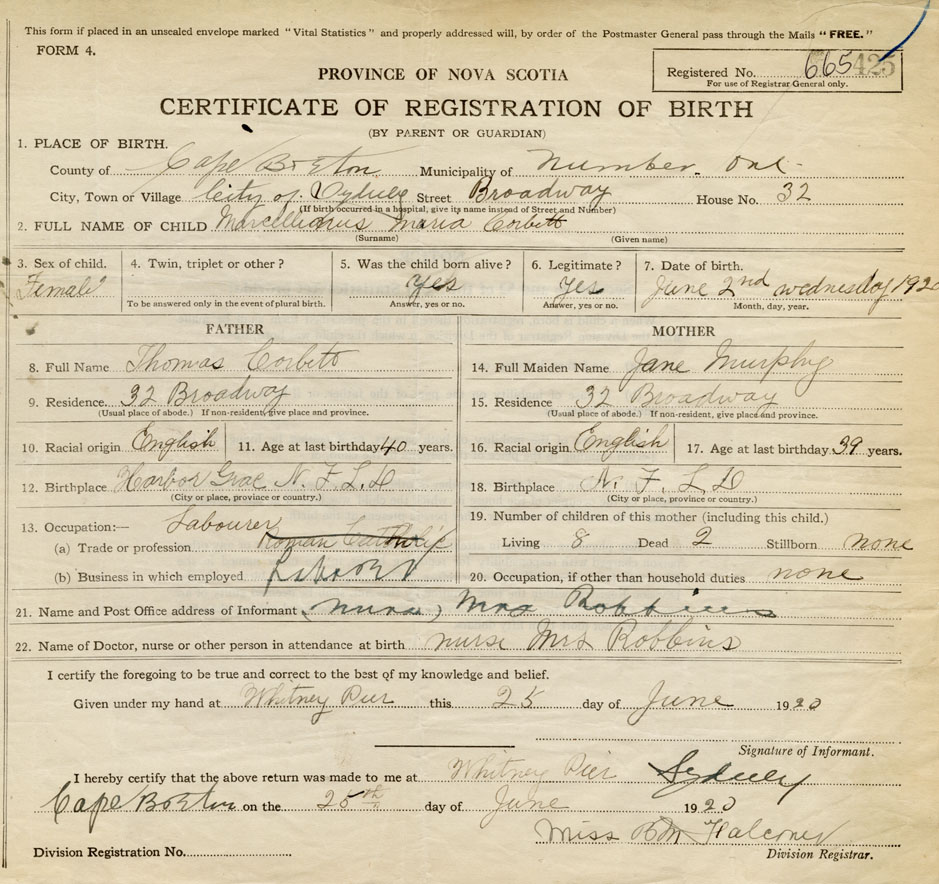 This form if placed in an unsealed envelope marked "Vital Statistics" and properly addressed will, by order of the Postmaster General pass through the Mails "FREE."
FORM 4.
Registered No. 665 425
For use of Registrar General only.
PROVINCE OF NOVA SCOTIA
CERTIFICATE OF REGISTRATION OF BIRTH
(BY PARENT OR GUARDIAN)
1. PLACE OF BIRTH.
County of Cape Breton Municipality of Number One
City, Town or Village City of Sydney Street Broadway House No. 32
(If birth occurred in a hospital, give its name instead of Street and Number)
2. FULL NAME OF CHILD Marcellianus Maria Corbett
(Surname) (Given name)
3. Sex of child. 4. Twin, triplet or other? 5. Was the child born alive? 6. Legitimate? 7. Date of birth.
Female yes Yes June 2nd wednesday 1920
To be answered only in the event of plural birth. Answer, yes or no. Answer, yes or no. Month, day, year.
FATHER MOTHER
8. Full Name Thomas Corbett 14. Full Maiden Name Jane Murphy
9. Residence. 32 Broadway 15. Residence 32 Broadway
(Usual place of abode.) If non-resident, give place and province. (Usual place of abode.) If non-resident, give place and province.
10. Racial origin English 11. Age at last birthday 40 years. 16. Racial origin English 17. Age at last birthday 39 years.
12. Birthplace Harbor Grac N. F. L. D 18. Birthplace N. F. L. D
(City or place, province or country.) (City or place, province or country.)
13. Occupation:— Labourer 19. Number of children of this mother (including this child.)
(a) Trade or profession Roman Catholic Living 8 Dead 2 Stillborn none
(b) Business in which employed 20. Occupation, if other than household duties none
21. Name and Post Office address of Informant (nurse) Mrs Robbins
22. Name of Doctor, nurse or other person in attendance at birth nurse Mrs Robbins
I certify the foregoing to be true and correct to the best of my knowledge and belief.
Given under my hand at Whitney Pier this 25 day of June 1920
Signature of Informant.
I hereby certify that the above return was made to me at Whitney Pier Sydney
Cape Breton on the 25th day of June 1920
Miss BM Falconer
Division Registration No. Division Registrar.